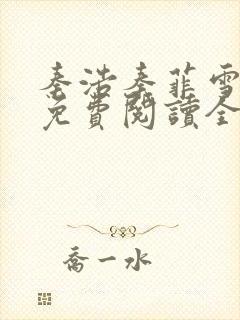 秦浩秦菲雪
免費閱讀全
喬一水